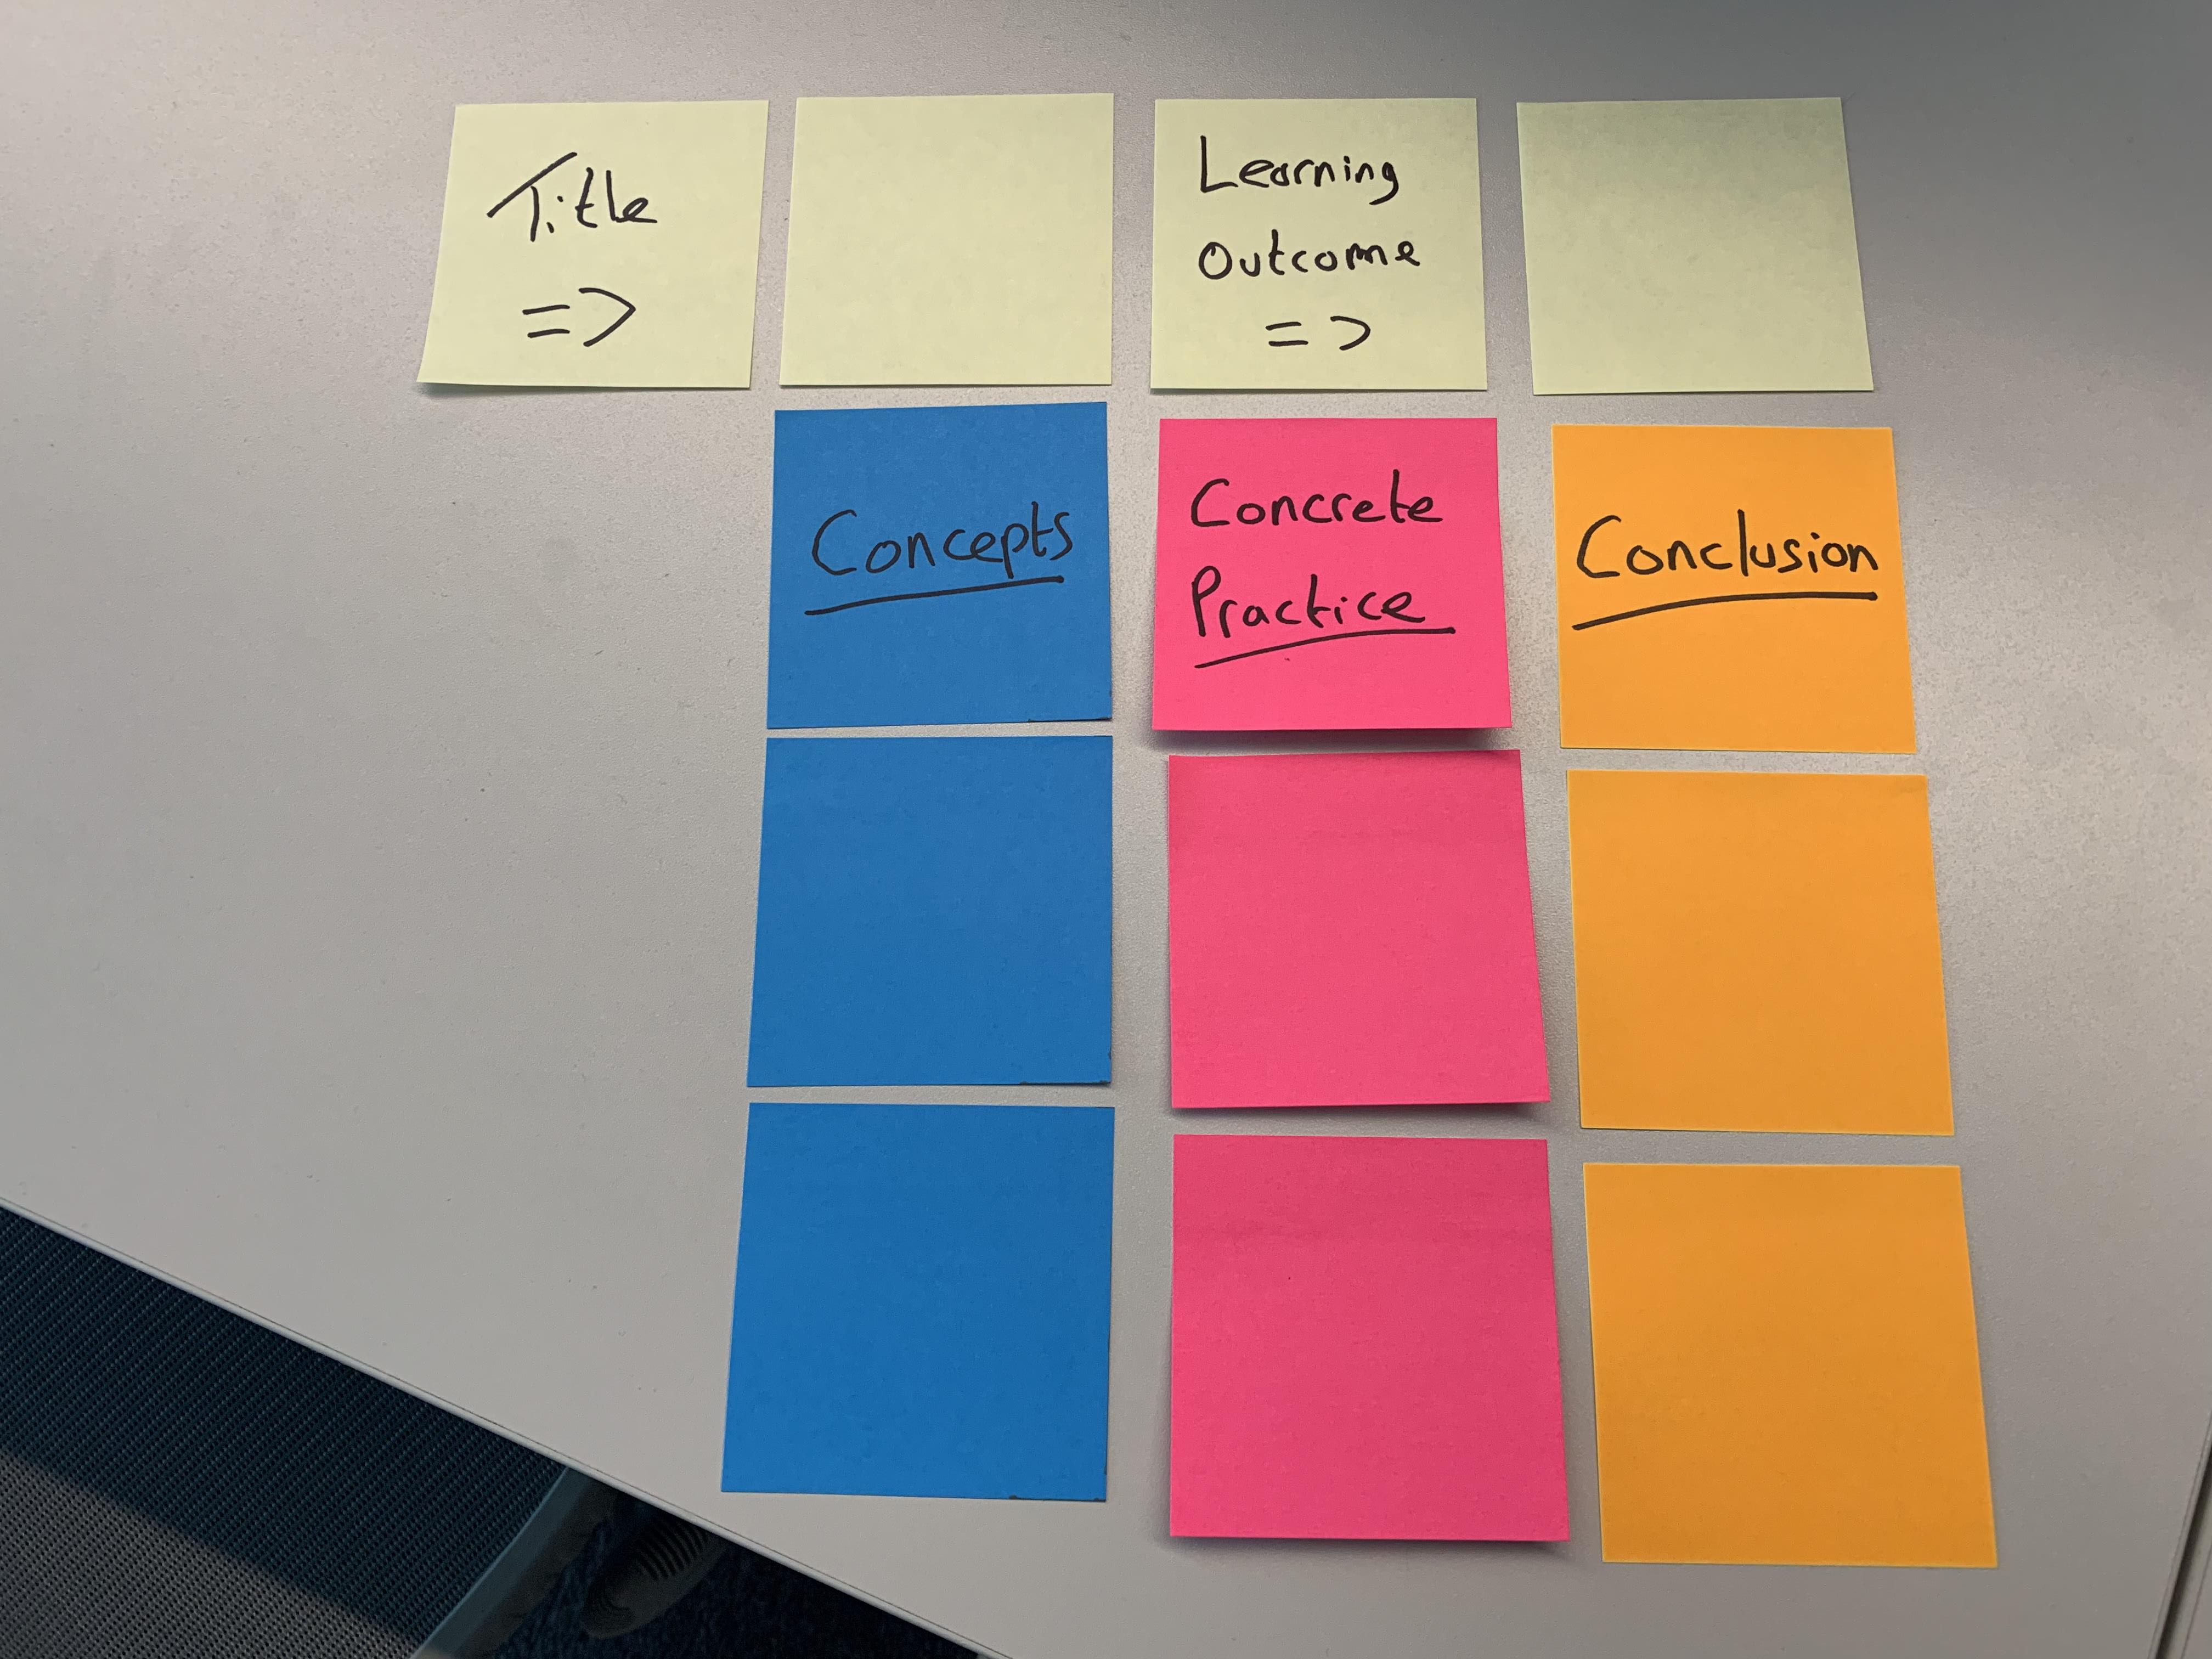 Title
=>
Learning
Outcome
=>
Concepts
Concrete
Practice
Conclusion